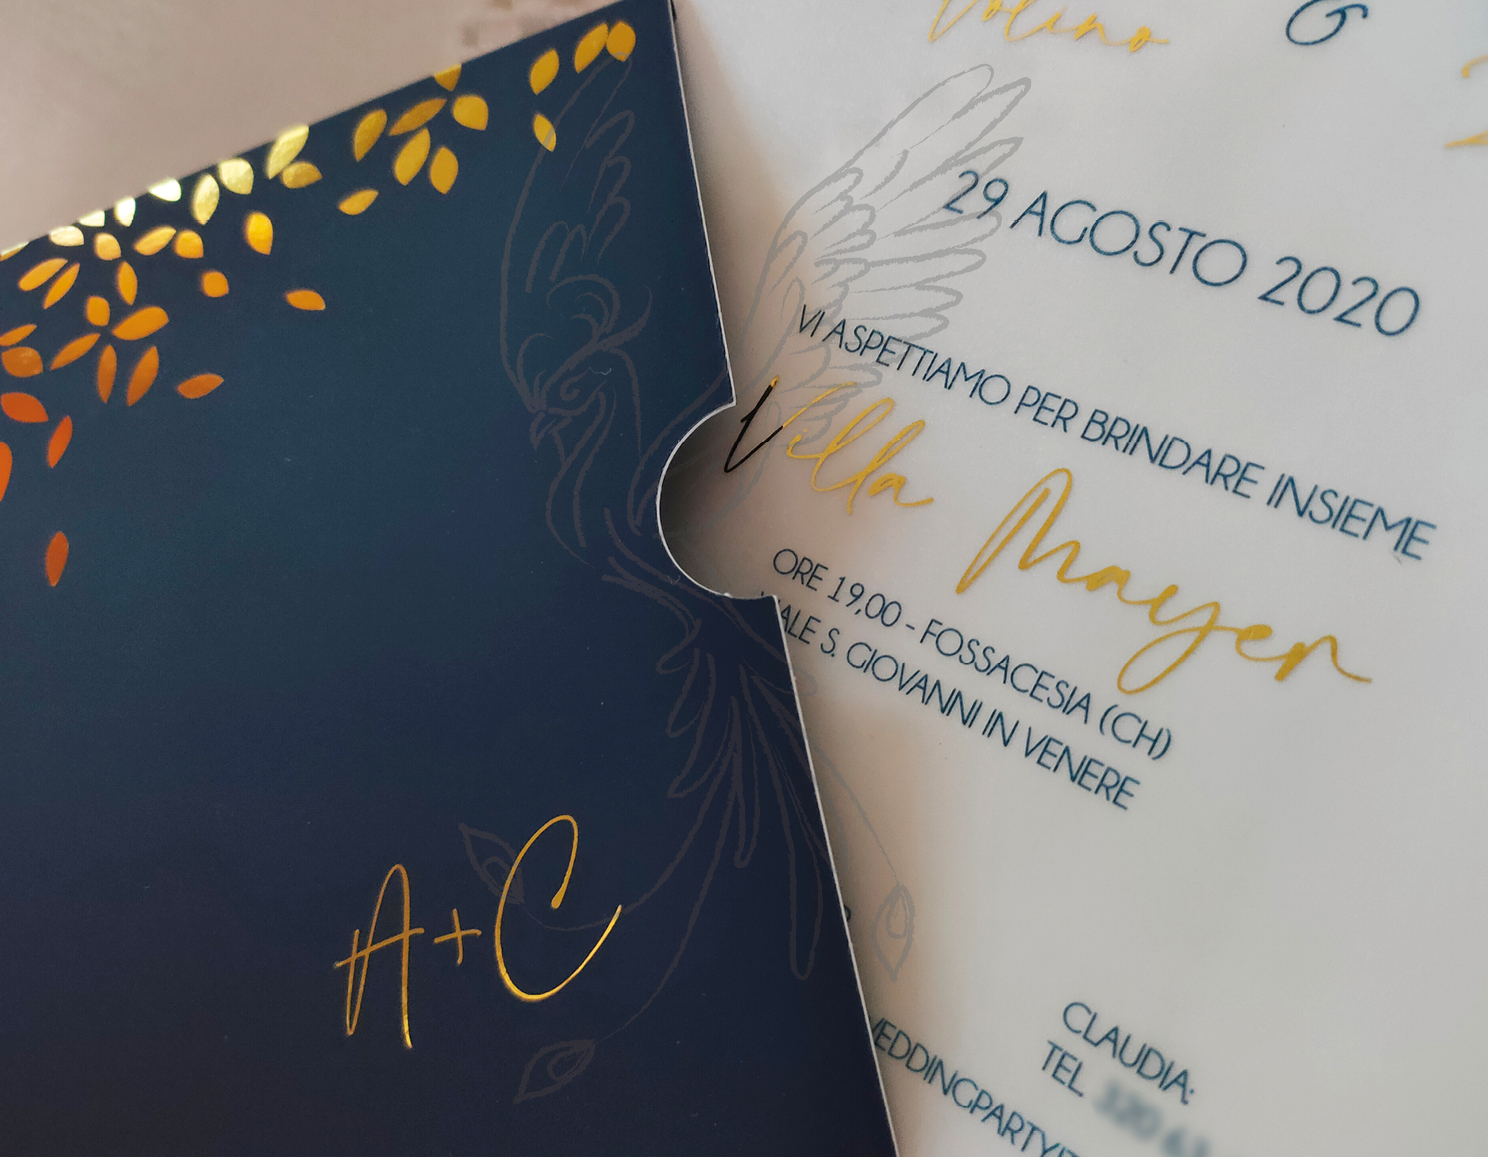 Volino &
29 AGOSTO 2020
VI ASPETTIAMO PER BRINDARE INSIEME
Villa Mayer
ORE 19,00 - FOSSACESIA (CH)
VIALE S. GIOVANNI IN VENERE
A+C
CLAUDIA:
TEL
WEDDINGPARTY